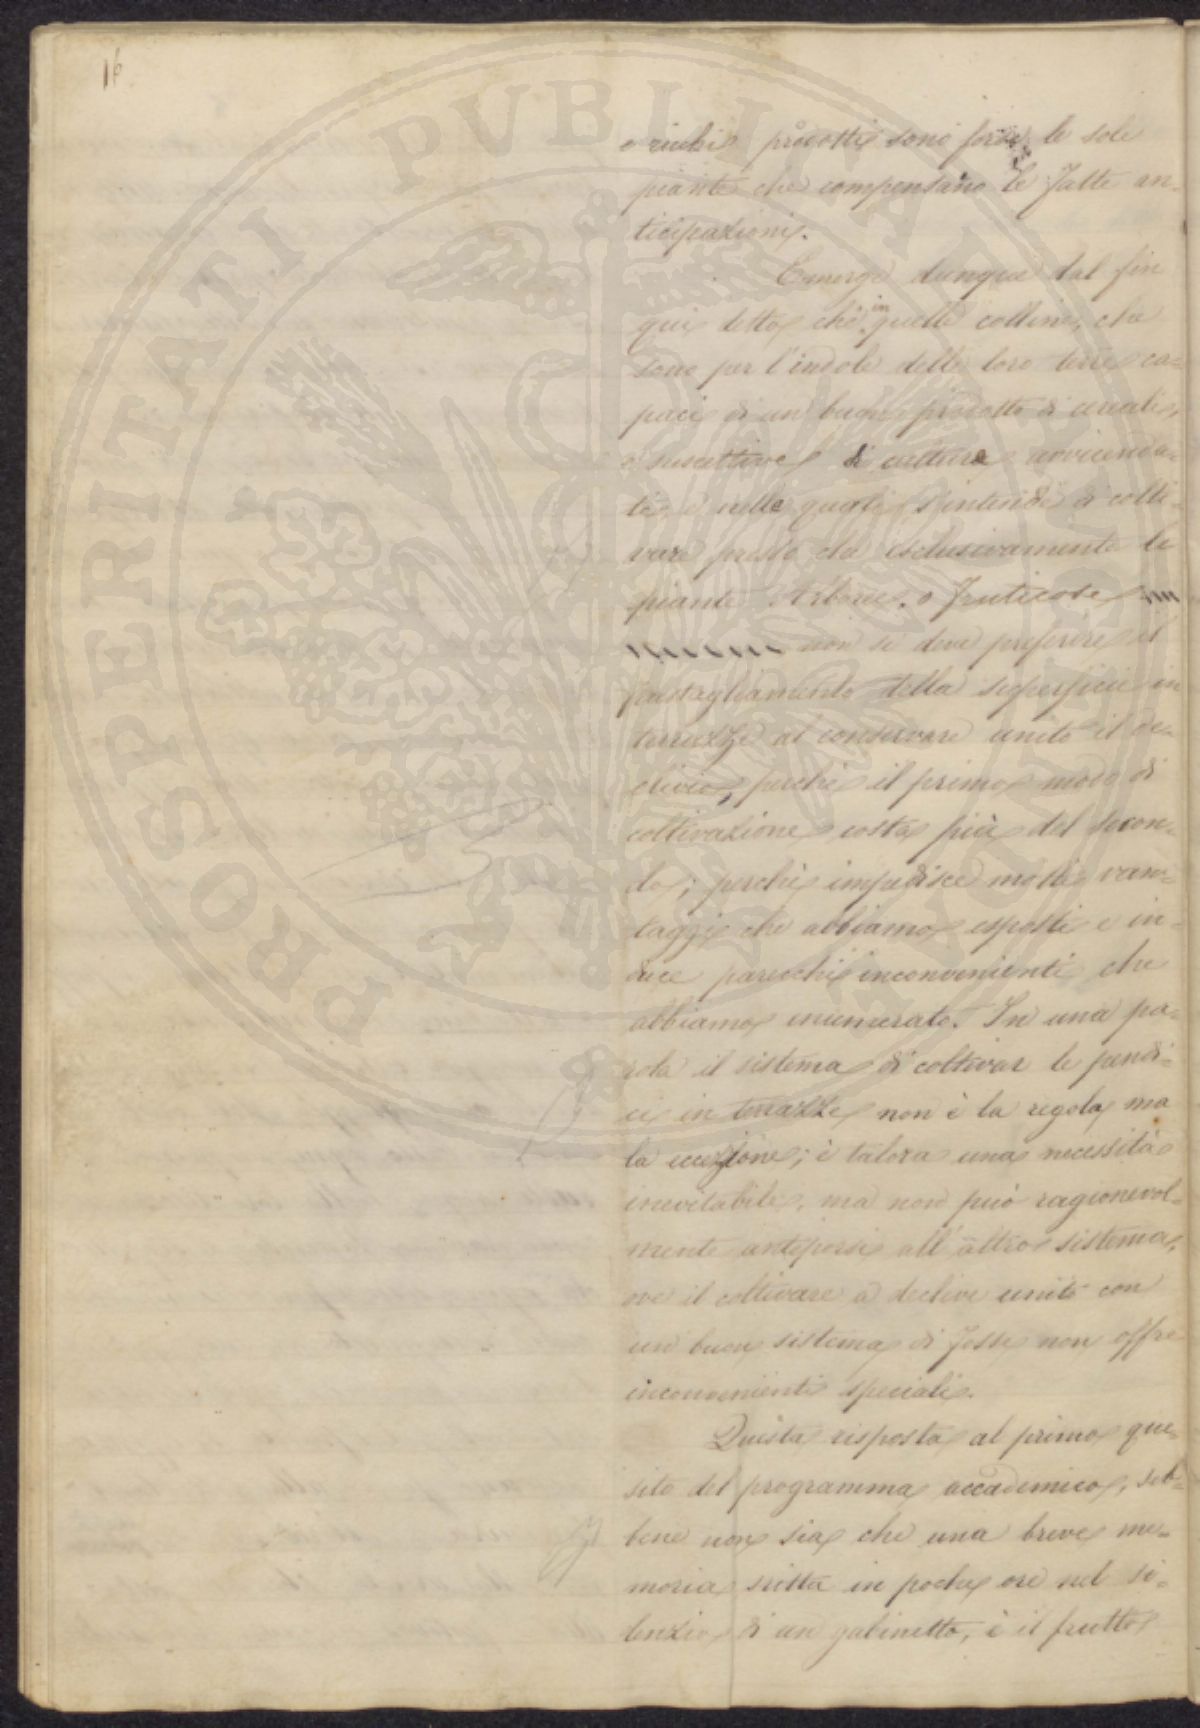 16
PROSPERITATI PUBLICAE
o ricchi prodotti sono forse le sole
piante che compensano le fatte an-
ticipazioni.
Emerge dunque dal fin
qui detto che in quelle colline, che
sono per l'indole delle loro terre ca-
paci di un buon prodotto di cereali,
o suscettive di culture avvicenda-
te, e nelle quali s'intende di colti-
vare presto che esclusivamente le
piante Arboree, o fruticose
non si deve preferire il
frastagliamento della superficie in
terrazze al conservare unito il de-
clivio, perchè il primo modo di
coltivazione costa più del secon-
do; perchè impedisce molti van-
taggi che abbiamo esposti e in-
duce parecchi inconvenienti che
abbiamo enumerato. In una pa-
rola il sistema di coltivar le pendi-
ci in terrazze non è la regola, ma
la eccezione; è talora una necessità
inevitabile, ma non può ragionevol-
mente anteporsi all'altro sistema,
ove il coltivare a declive unito con
un buon sistema di fosse non offre
inconvenienti speciali.
Questa risposta al primo que-
sito del programma accademico, seb-
bene non sia che una breve me-
moria scritta in poche ore nel si-
lenzio di un gabinetto, è il frutto